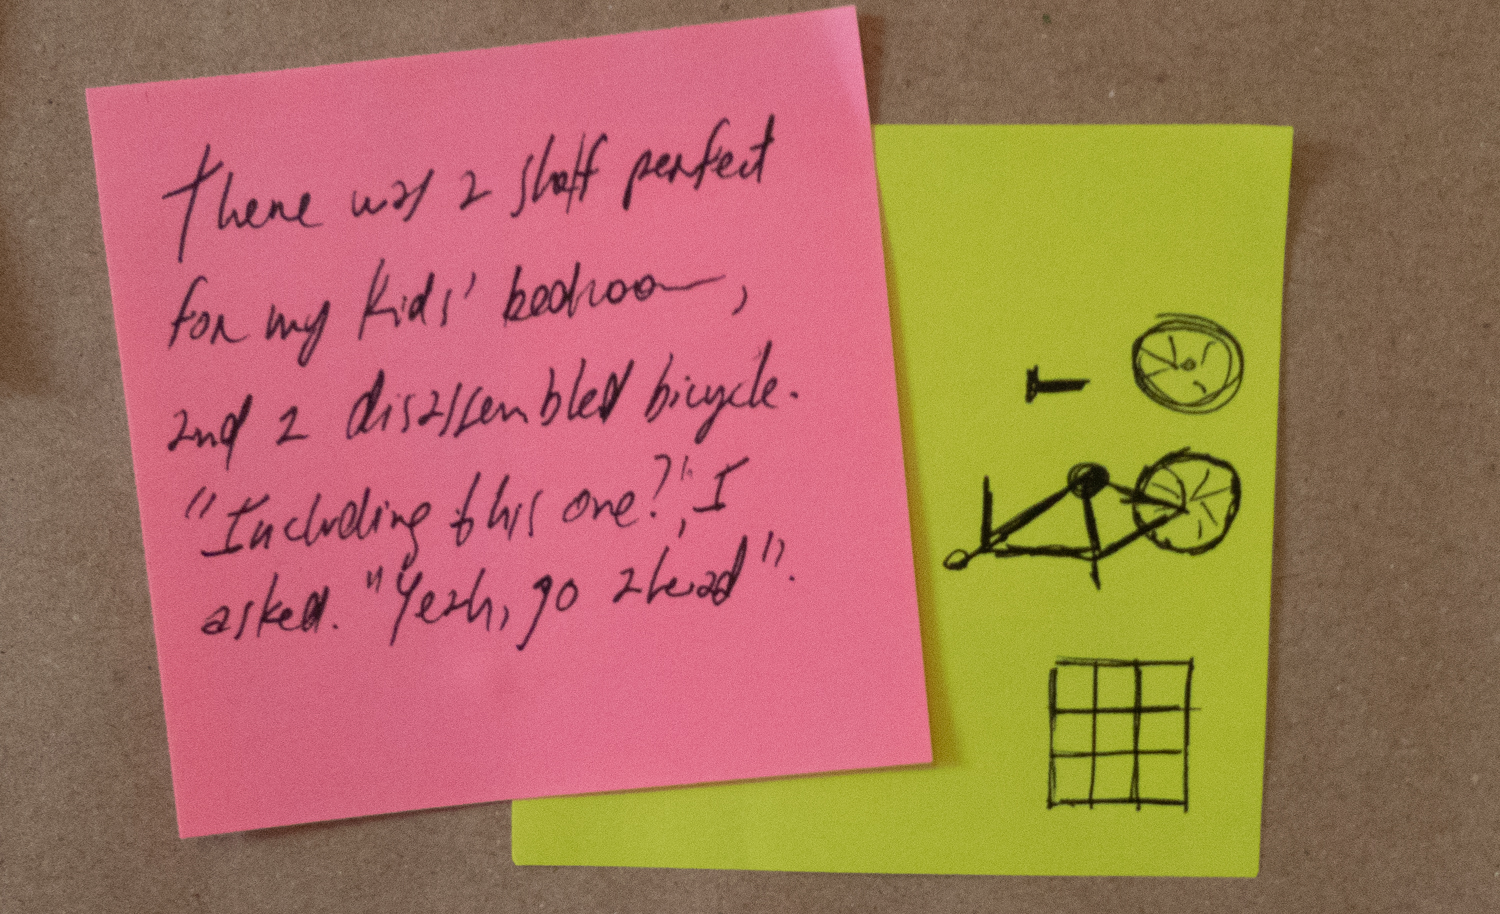 There was a shelf perfect
for my kids' bedroom,
and a disassembled bicycle.
"Including this one?", I
asked. "Yeah, go ahead".